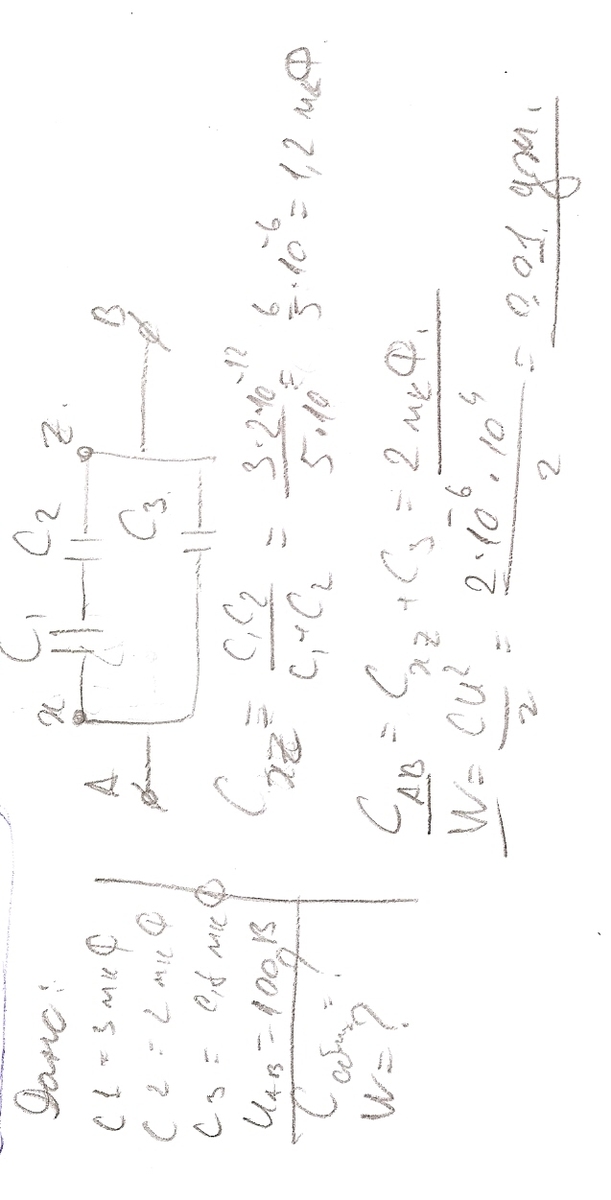 Дано:
C1 = 3 мкФ
C2 = 2 мкФ
C3 = 0,8 мкФ
U_AB = 100 В
C общ = ?
W = ?
A x C1 C2 z. B
C3
C_xz = C1C2 / (C1 + C2) = 3·2·10^-12 / 5·10 = 6/5·10^-6 = 1,2 мкФ
C_AB = C_xz + C3 = 2 мкФ.
W = CU^2 / 2 = 2·10^-6 · 10^4 / 2 = 0,01 Дж.